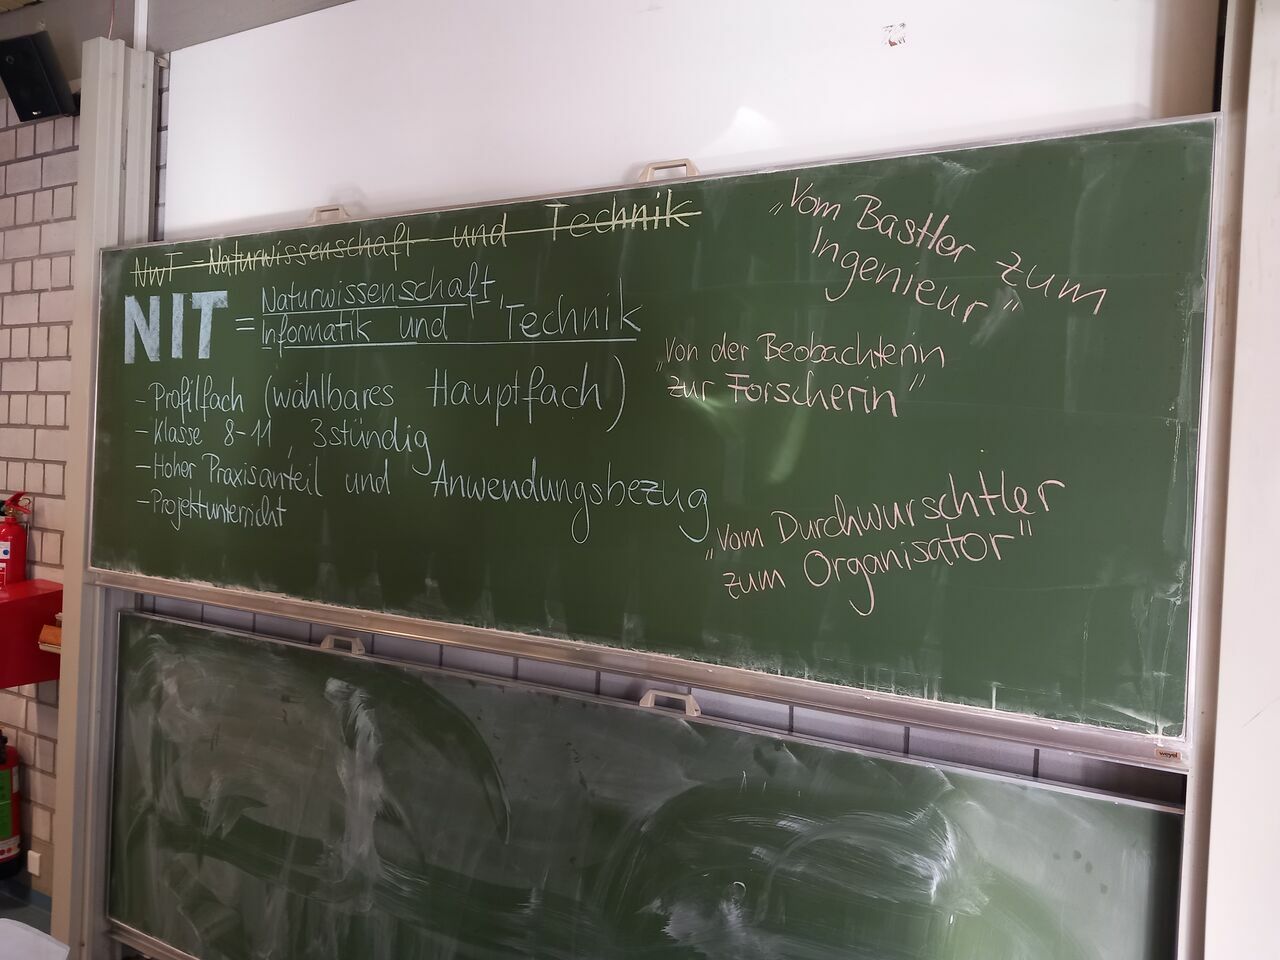 NwT - Naturwissenschaft und Technik
NIT = Naturwissenschaft,
Informatik und Technik
- Profilfach (wählbares Hauptfach)
- Klasse 8-11, 3stündig
- Hoher Praxisanteil und Anwendungsbezug
- Projektunterricht
„Vom Bastler zum
Ingenieur"
„Von der Beobachterin
zur Forscherin"
„Vom Durchwurschtler
zum Organisator"
weyel